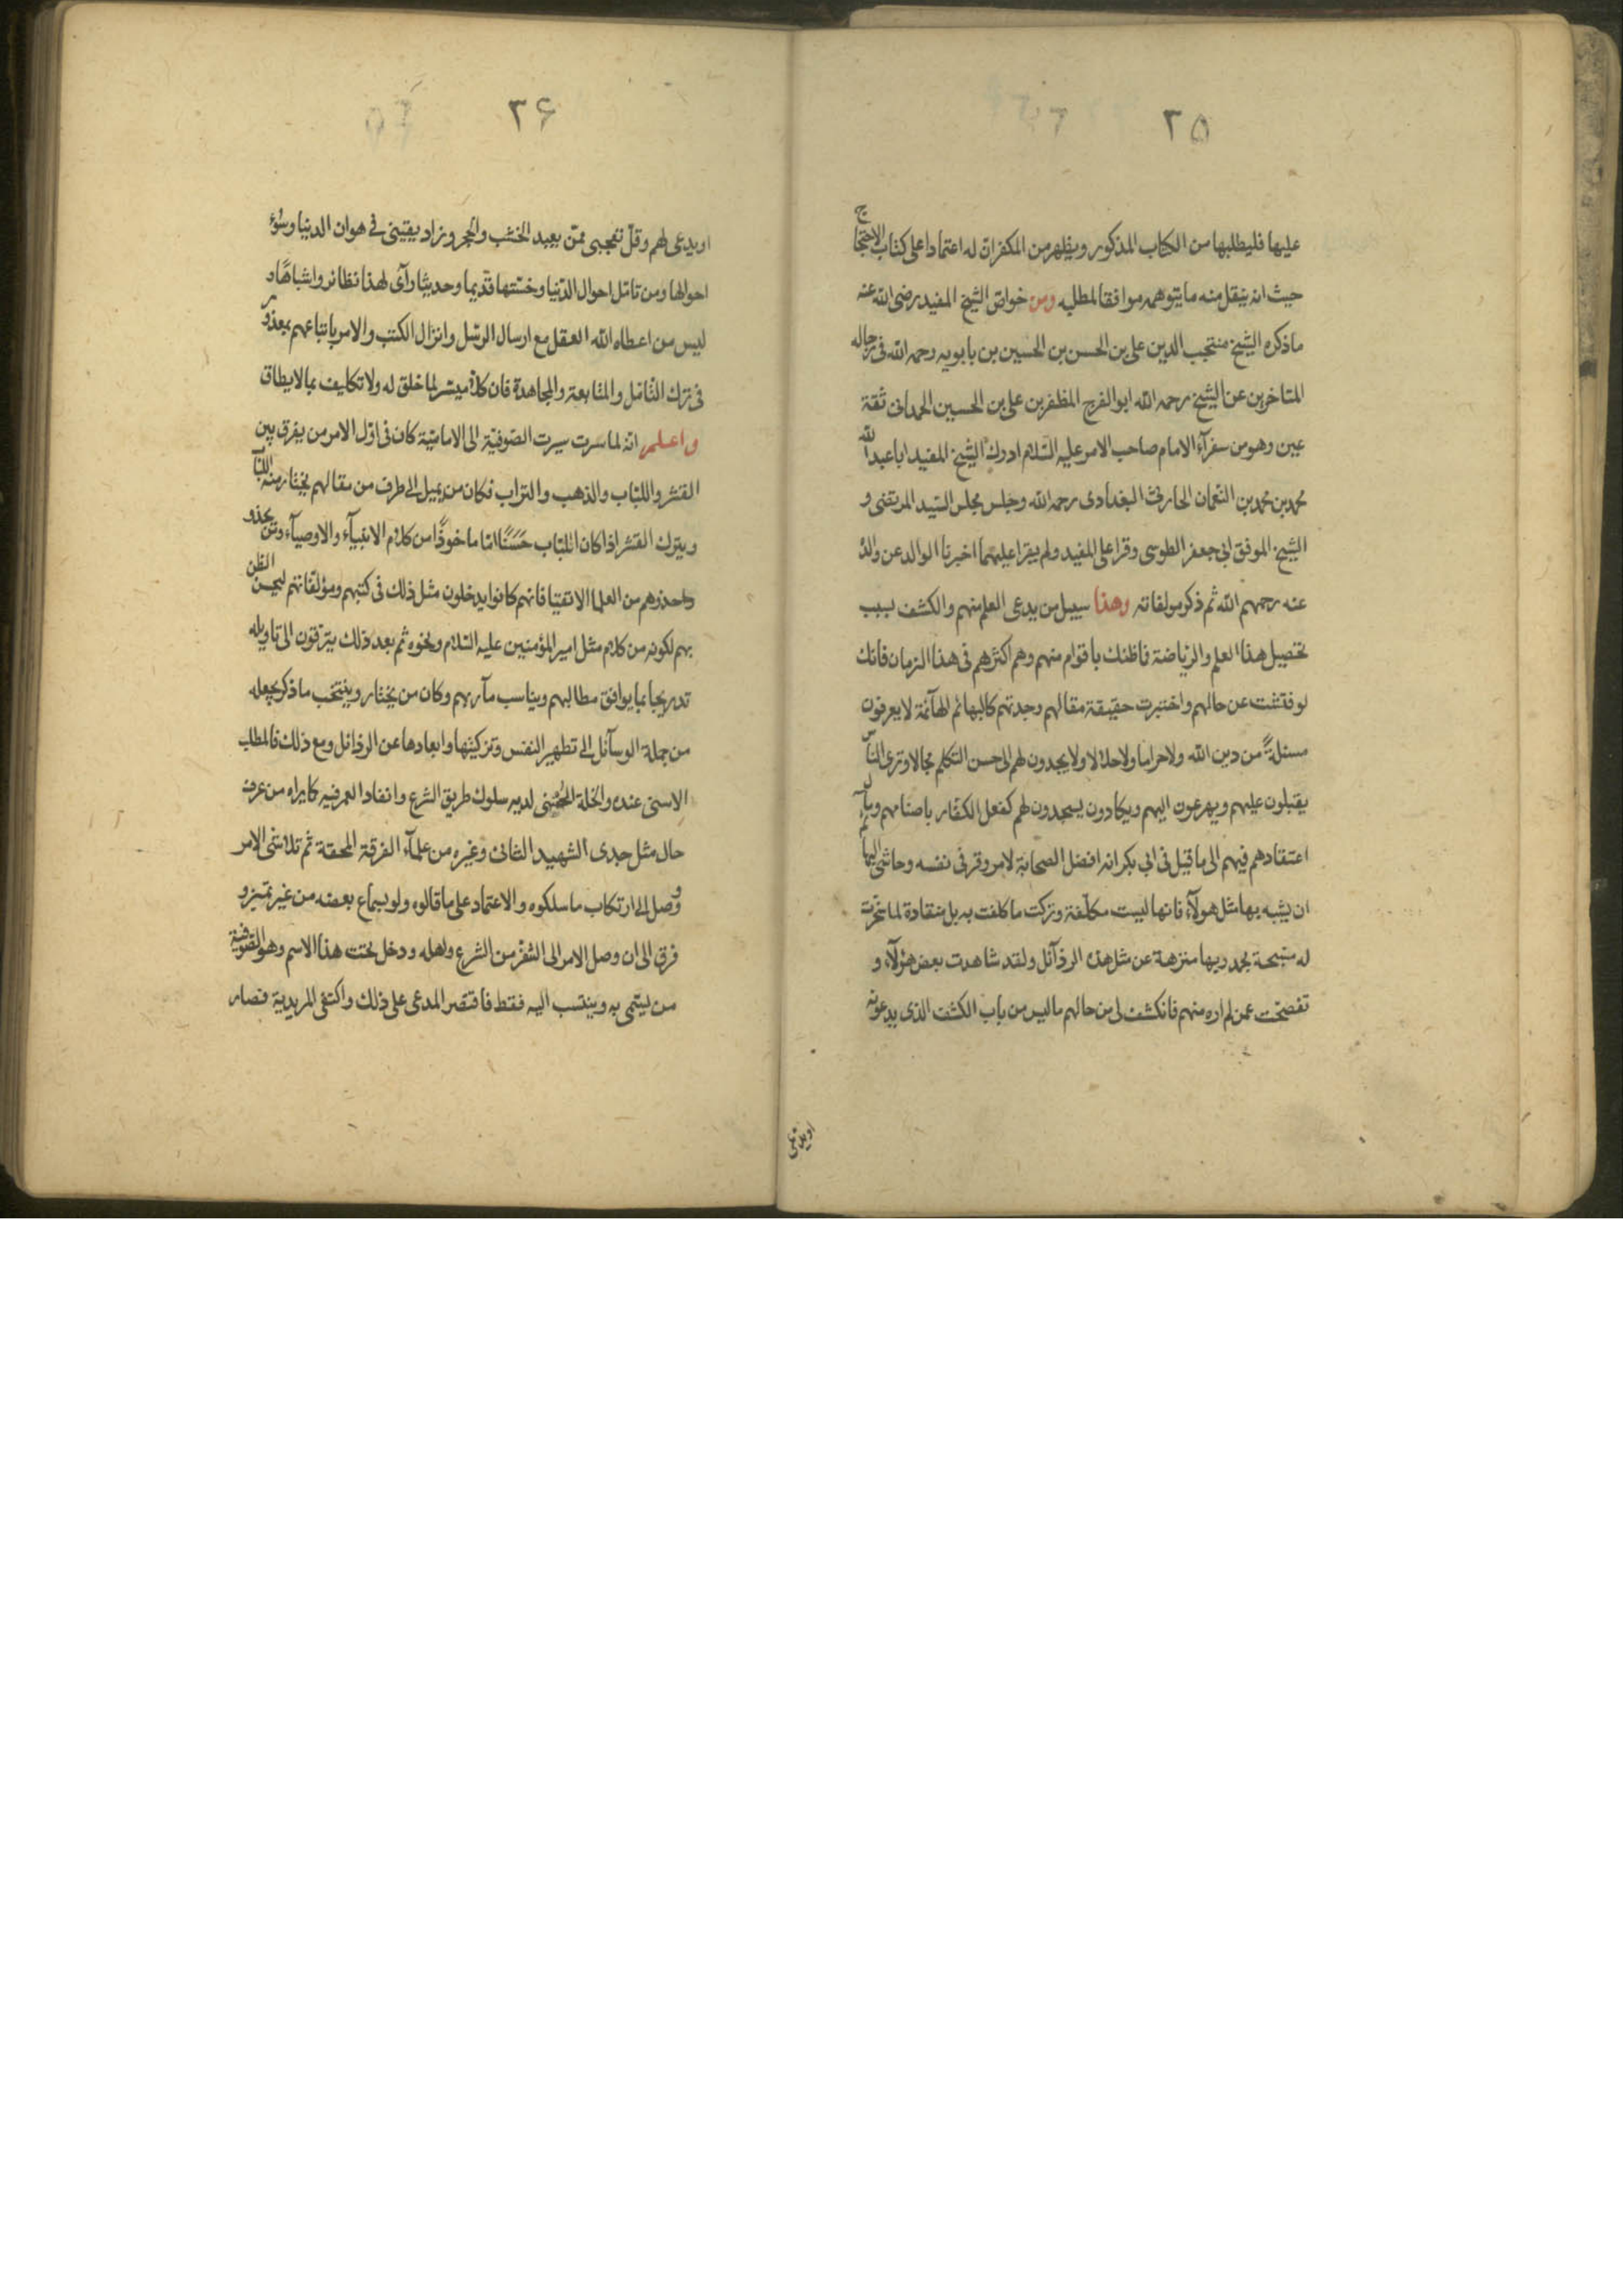 ۲۵
عليها فليطلبها من الكتاب المذكور ويظهر من المكفران له اعتمادا على كتاب الاحتجاج
حيث انه ينقل منه ما يتوهمه موافقا لمطلبه ومن خواص الشيخ المفيد رضى الله عنه
ماذكره الشيخ منتجب الدين على بن الحسن بن الحسين بن بابويه رحمه الله فى رجاله
المتاخرين عن الشيخ رحمه الله ابوالفرج المظفر بن على بن الحسين الحمدانى ثقة
عين وهو من سفرآء الامام صاحب الامر عليه السّلام ادرك الشيخ المفيد اباعبدالله
محمد بن محمد بن النعمان الحارثى البغدادى رحمه الله وجلس مجلس السّيد المرتضى و
الشيخ الموفق ابى جعفر الطوسى وقرا على المفيد ولم يقرا عليهما اخبرنا الوالد عن والده
عنه رحمهم الله ثم ذكر مولفاته وهذا سبيل من يدعى العلم منهم والكشف بسبب
تحصيل هذا العلم والرّياضة فاظنك باقوام منهم وهم اكثرهم فى هذا الزمان فانك
لو فتشت عن حالهم واختبرت حقيقة مقالهم وجدتهم كالبهائم الهآئمة لا يعرفون
مسئلةً من دين الله ولاحراما ولاحلالا ولايجدون لهم الى حسن التكلم مجالا وترى الناس
يقبلون عليهم ويهرعون اليهم ويكادون يسجدون لهم كفعل الكفّار باصنامهم
اعتقادهم فيهم الى ما قيل فى ابى بكر انه افضل الصحابة لامر وقر فى نفسه وحاشى البهائم
ان يشبه بها مثل هولآء فانها ليست مكلّفة وتركت ماكلفت به بل منقادة لما سخّرت
له مسبحة بحمد ربها منزهة عن مثل هذه الرذآئل ولقد شاهدت بعض هؤلآء و
تفصحت عمن لم اره منهم فانكشف لى من حالهم ماليس من باب الكشف الذى يدعونه
اويدعى
۲۶
اويدعى لهم وقلّ تعجبى ممّن يعبد الخشب والحجر وزاد يقينى فى هوان الدنيا وسُوء
احوالها ومن تامّل احوال الدّنيا وخسّتها قديما وحديثا رآى لهذا نظائر واشباهًا و
ليس من اعطاه الله العقل مع ارسال الرسل وانزال الكتب والامر باتباعهم بمعذور
فى ترك التامّل والمتابعة والمجاهدة فان كلا ميسّر لما خلق له ولا تكليف بمالايطاق
واعلم انه لما سَرت سيرت الصّوفيّة الى الاماميّة كان فى اوّل الامر من يفرق بين
القشر واللبّاب والذهب والتراب فكان من يميل الى طرف من مقالهم يختار منه اللبّاب
ويترك القشر اذا كان اللبّاب حَسَنًا امّا ماخوذًا من كلام الانبيآء والاوصيآء ومن يحذو
حذوهم من العلما الاتقيا فانهم كانوا يدخلون مثل ذلك فى كتبهم ومؤلفاتهم ليحسن الظن
بهم لكونه من كلام مثل امير المؤمنين عليه السّلام ونحوه ثم بعد ذلك يترقون الى تاويله
تدريجا بما يوافق مطالبهم ويناسب مآربهم وكان من يختار وينتخب ما ذكر يجعله
من جملة الوسآئل الى تطهير النفس وتزكيتها وابعادها عن الرذائل ومع ذلك فالمطلب
الاسنى عنده والخلة الحُسْنى لديه سلوك طريق الشرع وانفاد العمر فيه كما يراه من عرف
حال مثل جدى الشهيد الثانى وغيره من علمآء الفرقة المحقة ثم تلاشى الامر
ووصل الى ارتكاب ماسلكوه والاعتماد على ما قالوه ولو بسماع بعضه من غير تميز و
فرق الى ان وصل الامر الى الشفر من الشرع واهله ودخل تحت هذا الاسم وهو الصّوفيّة
من ليتمى به وينتسب اليه فقط فاقتصر المدعى على ذلك واكتفى المريدية فصار